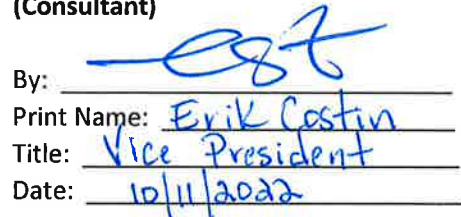 (Consultant)
By:
Print Name: Erik Costin
Title: Vice President
Date: 10/11/2022